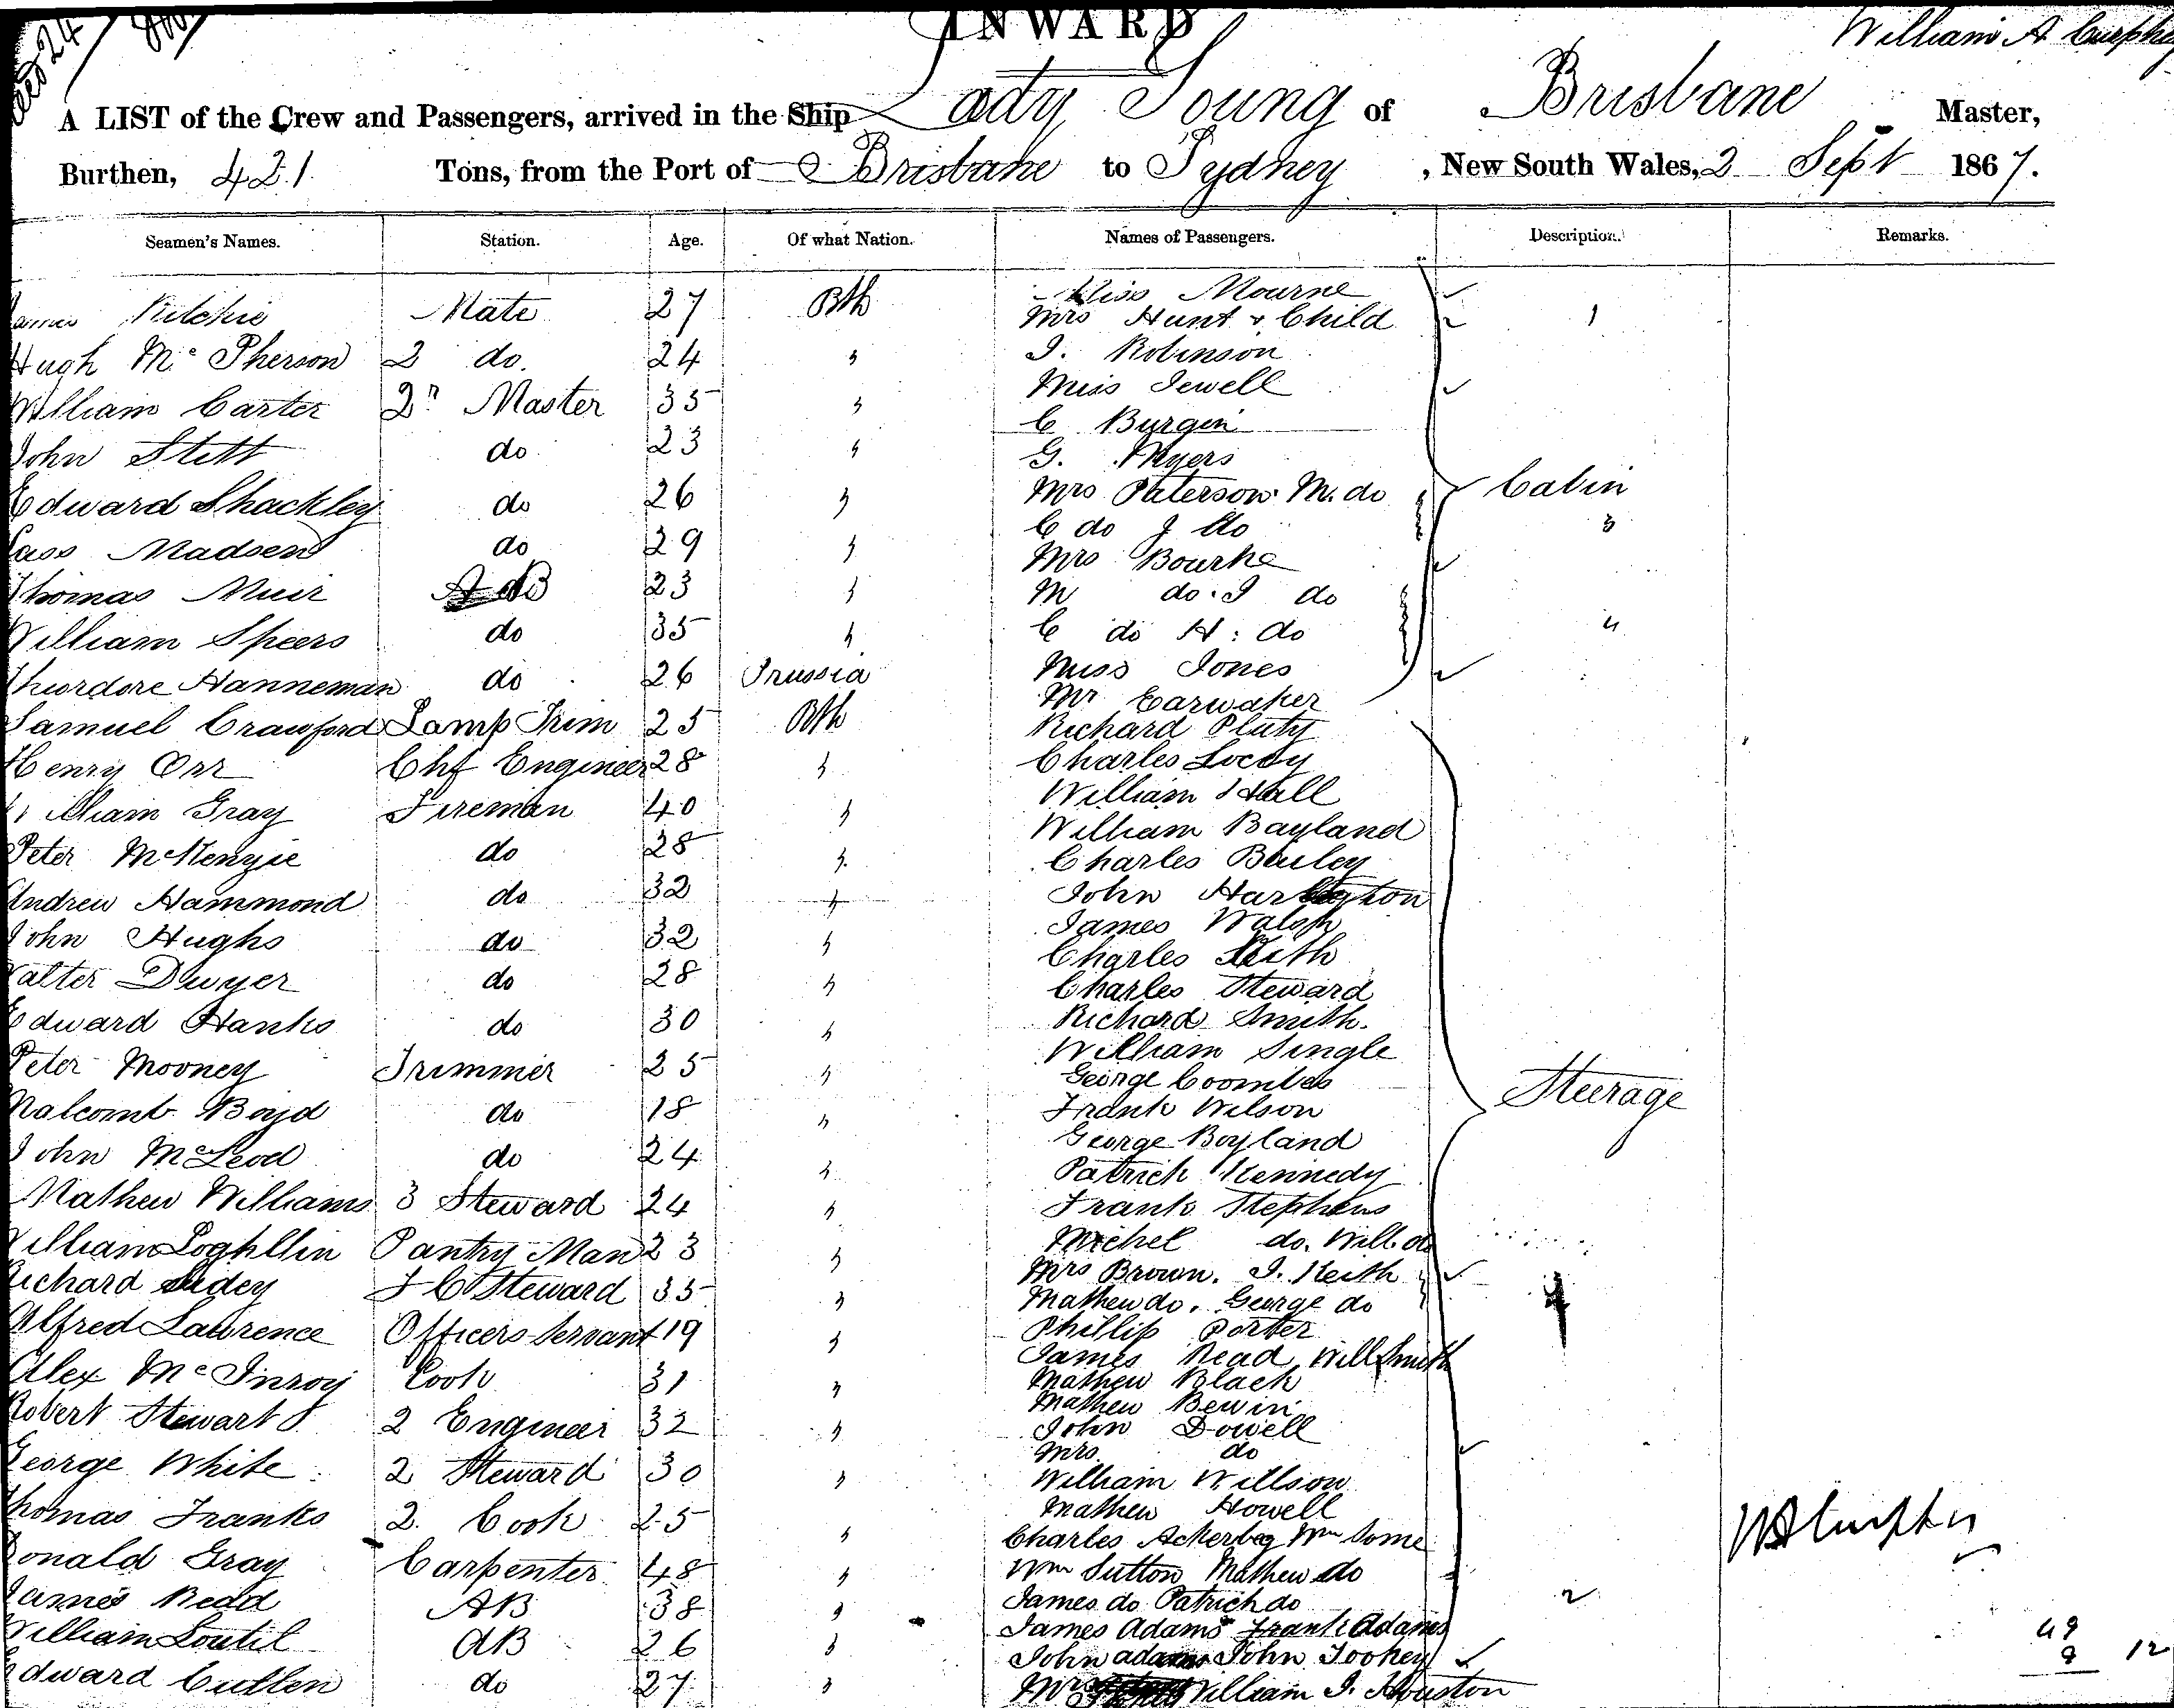 INWARD
William A Curphey
A LIST of the Crew and Passengers, arrived in the Ship Lady Young of Brisbane Master,
Burthen, 421 Tons, from the Port of Brisbane to Sydney , New South Wales, 2 Sept 1867.
Seamen's Names. Station. Age. Of what Nation. Names of Passengers. Description. Remarks.
James Ritchie Mate 27 Bth Miss Mourne
Mrs Hunt & Child 1
Hugh McPherson 2 do. 24 " J. Robinson
Miss Jewell
William Carter 2n Master 35 " C Burgin
John Stitt do 23 " G. Myers
Edward Shackley do 26 " Mrs Paterson M. do Cabin
C do J do 3
Madsen do 29 " Mrs Bourke
Thomas Muir AB 23 " M do. J do
William Speers do 35 " C do H: do 4
Theordore Hanneman do 26 Prussia Miss Jones
Mr Earwaker
Samuel Crawford Lamp Trim 25 Bth Richard Pluty
Henry Orr Chf Engineer 28 " Charles Locoy
William Hall
William Gray Fireman 40 " William Bayland
Peter McKenzie do 28 " Charles Bailey
Andrew Hammond do 32 " John
James Walsh
John Hughs do 32 " Charles Keith
Walter Dwyer do 28 " Charles Steward
Edward Hanks do 30 " Richard Smith.
William Single
Peter Mooney Trimmer 25 " George Coombes Steerage
Malcomb Boyd do 18 " Frank Wilson
George Boyland
John McLeod do 24 " Patrick Kennedy
Mathew Williams 3 Steward 24 " Frank Stephens
William Loghllin Pantry Man 23 " Michel do. Will. do
Richard Sidey F C Steward 35 " Mrs Brown. J. Keith
Mathew do. George do
Alfred Laurence Officers Servant 19 " Phillip Porter
James Read Will Smith
Alex McInroy Cook 31 " Mathew Black
Mathew Bewin
Robert Stewart 2 Engineer 32 " John Dowell
Mrs do
George White 2 Steward 30 " William Willson
Mathew Howell
Thomas Franks 2. Cook 25 " Charles Ackerbeg Wm Some
Donald Gray Carpenter 48 " Wm Sutton Mathew do
James Redd AB 38 " James do Patrick do 2
William Loutil AB 26 " James Adams Frank Adams
John adams John Tookey
Edward Cullen do 27 " Mrs William J. Houston
WACurphey
49
9 12